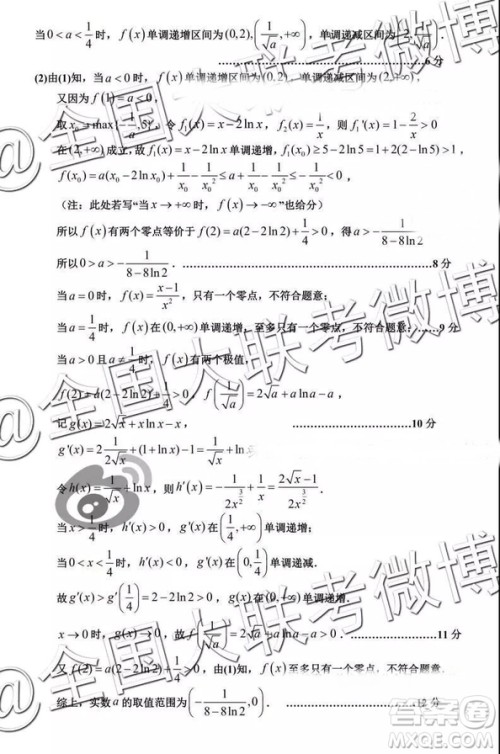 当0<a<1/4时，f(x)单调递增区间为(0,2),(1/√a,+∞)，单调递减区间为(2,1/√a)．
……6分
(2)由(1)知，当a<0时，f(x)单调递增区间为(0,2)，单调递减区间为(2,+∞)，
又因为f(1)=a<0，
取x₀=max{-1/a,5}，令f₁(x)=x-2lnx，f₂(x)=1/x，则f₁'(x)=1-2/x>0
在(2,+∞)成立，故f₁(x)=x-2lnx单调递增，f₁(x₀)≥5-2ln5=1+2(2-ln5)>1，
f(x₀)=a(x₀-2lnx₀)+1/x₀-1/x₀²≤a+1/x₀-1/x₀²≤-1/x₀²<0，
（注：此处若写“当x→+∞时，f(x)→-∞”也给分）
所以f(x)有两个零点等价于f(2)=a(2-2ln2)+1/4>0，得a>-1/(8-8ln2)
所以0>a>-1/(8-8ln2)．……8分
当a=0时，f(x)=(x-1)/x²，只有一个零点，不符合题意；
当a=1/4时，f(x)在(0,+∞)单调递增，至多只有一个零点，不符合题意；……9分
当a>0且a≠1/4时，f(x)有两个极值，
f(2)=a(2-2ln2)+1/4>0，f(1/√a)=2√a+alna-a，
记g(x)=2√x+xlnx-x，……10分
g'(x)=2·1/(2√x)+(1+lnx)-1=1/√x+lnx，
令h(x)=1/√x+lnx，则h'(x)=-1/(2x^(3/2))+1/x=(2√x-1)/(2x^(3/2))．
当x>1/4时，h'(x)>0，g'(x)在(1/4,+∞)单调递增；
当0<x<1/4时，h'(x)<0，g'(x)在(0,1/4)单调递减．
故g'(x)>g'(1/4)=2-2ln2>0，g(x)在(0,+∞)单调递增．
x→0时，g(x)→0，故f(1/√a)=2√a+alna-a>0．……11分
又f(2)=a(2-2ln2)+1/4>0，由(1)知，f(x)至多只有一个零点，不符合题意．
综上，实数a的取值范围为(-1/(8-8ln2),0)．……12分
@全国大联考微博
@全国大联考微博
@全国大联考微博
答案圈
MXQE.COM